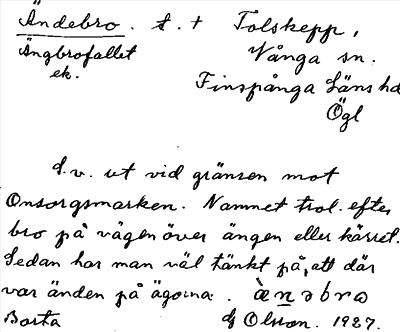 Ändebro. t. + Tolskepp,
Ängbrofallet Vånga sn.
ek. Finspånga läns hd
Ögl
d.v. ut vid gränsen mot
Onsorgsmarken. Namnet trol. efter
bro på vägen över ängen eller kärret.
Sedan har man väl tänkt på, att där
var änden på ägorna. ànəbrω
Borta Olson. 1927.